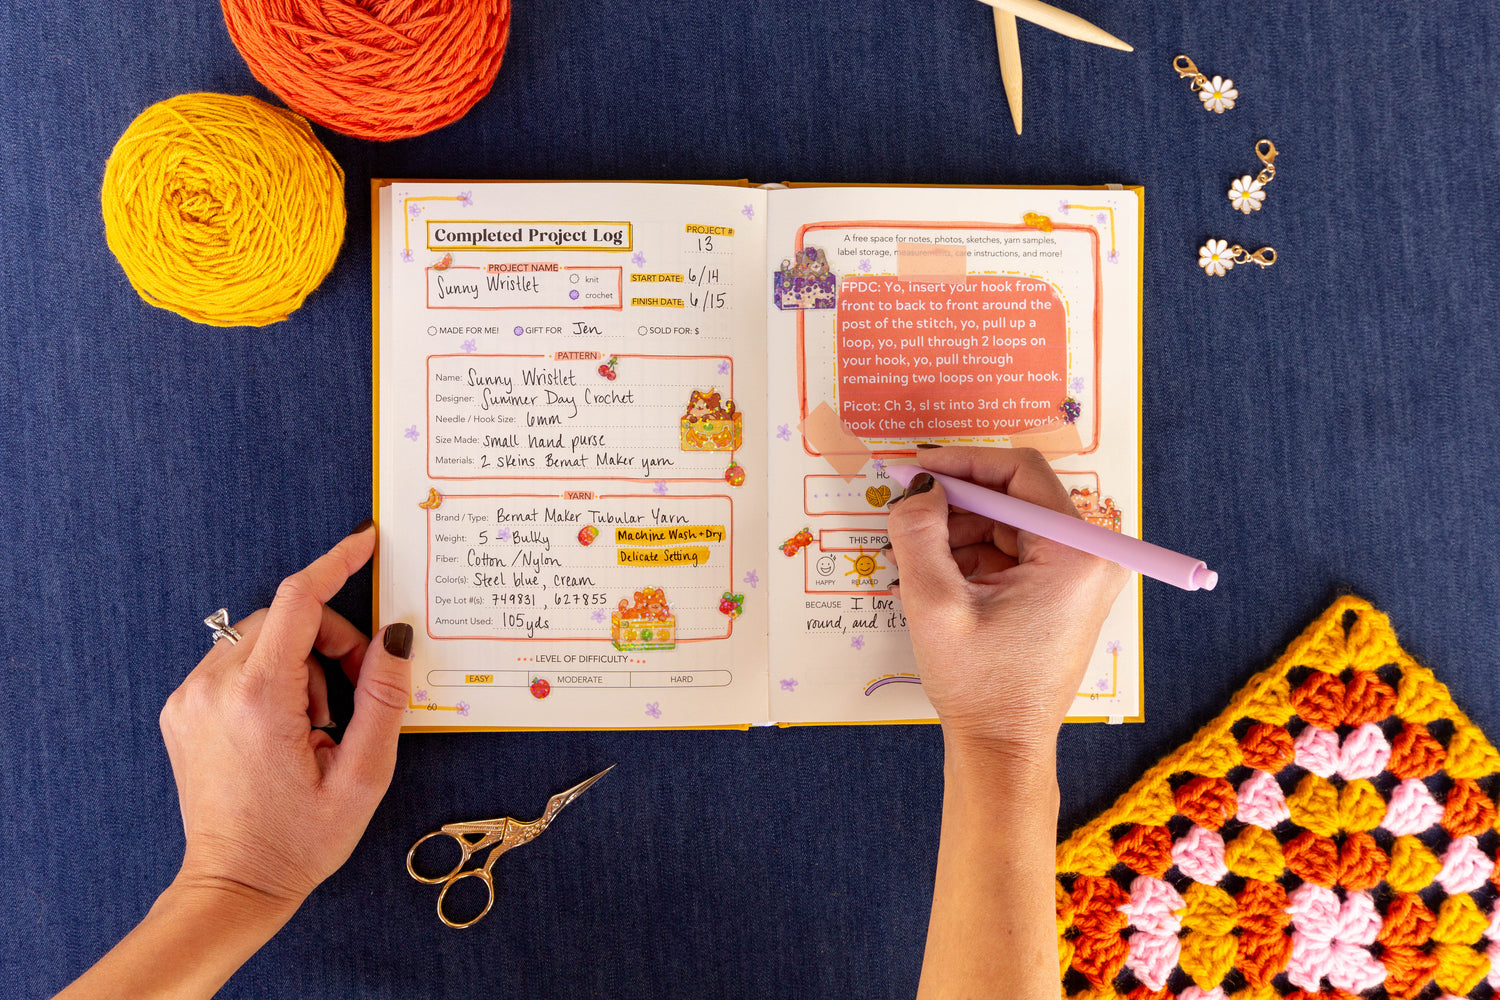 Completed Project Log
PROJECT #
13
PROJECT NAME
Sunny Wristlet
knit
crochet
START DATE: 6/14
FINISH DATE: 6/15
MADE FOR ME! GIFT FOR Jen SOLD FOR: $
PATTERN
Name: Sunny Wristlet
Designer: Summer Day Crochet
Needle / Hook Size: 6mm
Size Made: small hand purse
Materials: 2 skeins Bernat Maker yarn
YARN
Brand / Type: Bernat Maker Tubular Yarn
Weight: 5 - Bulky
Machine Wash + Dry
Fiber: Cotton / Nylon
Delicate Setting
Color(s): Steel blue, cream
Dye Lot #(s): 749831, 627855
Amount Used: 105yds
LEVEL OF DIFFICULTY
EASY MODERATE HARD
60
A free space for notes, photos, sketches, yarn samples,
label storage, measurements, care instructions, and more!
FPDC: Yo, insert your hook from
front to back to front around the
post of the stitch, yo, pull up a
loop, yo, pull through 2 loops on
your hook, yo, pull through
remaining two loops on your hook.
Picot: Ch 3, sl st into 3rd ch from
hook (the ch closest to your work)
HO
THIS PRO
HAPPY RELAXED
BECAUSE I love
round, and it's
61